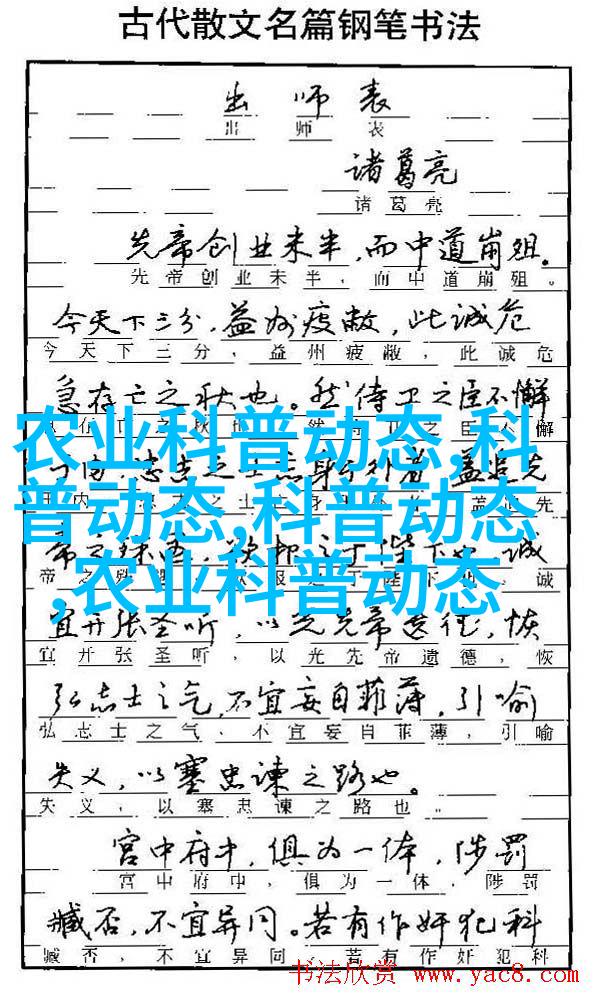 古代散文名篇钢笔书法
出师表
出师表
诸葛亮
诸葛亮
先帝创业未半，而中道崩殂。
先帝创业未半，而中道崩殂。
今天下三分，益州疲敝，此诚危
今天下三分，益州疲敝，此诚危
急存亡之秋也。然侍卫之臣不懈
臣不懈
农业科普动态,科
普动态,科普动态
,农业科普动态
盖追先
先
诚
帝之殊
诚
宜开张圣听，以光先帝遗德，恢
宜开张圣听，以光先帝遗德，恢
弘志士之气，不宜妄自菲薄，引喻
弘志士之气，不宜妄自菲薄，引喻
失义，以塞忠谏之路也。
失义，以塞忠谏之路也。
宫中府中，俱为一体，陟罚
宫中府中，俱为一体，陟罚
臧否，不宜异同。若有作奸犯科
臧否，不宜异同。若有作奸犯科
书法欣赏 www.yac8.com